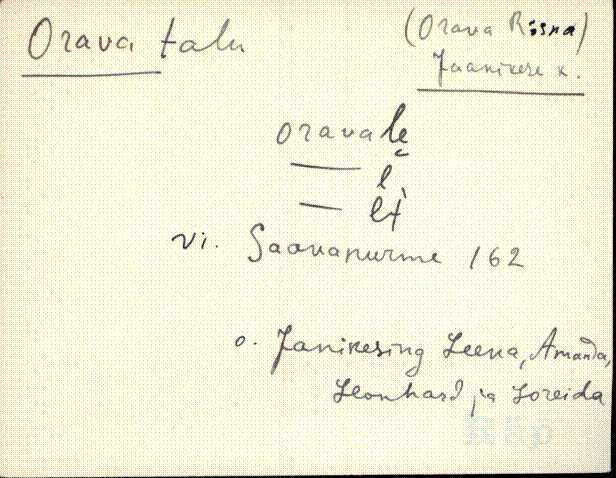 Orava talu
(Orava Rosna)
Jaanikese k.
oravalę
— l
— lt
vi. Saavapurme 162
o. Janikesing Leena, Amanda,
Leonhard ja Loreida
Räp